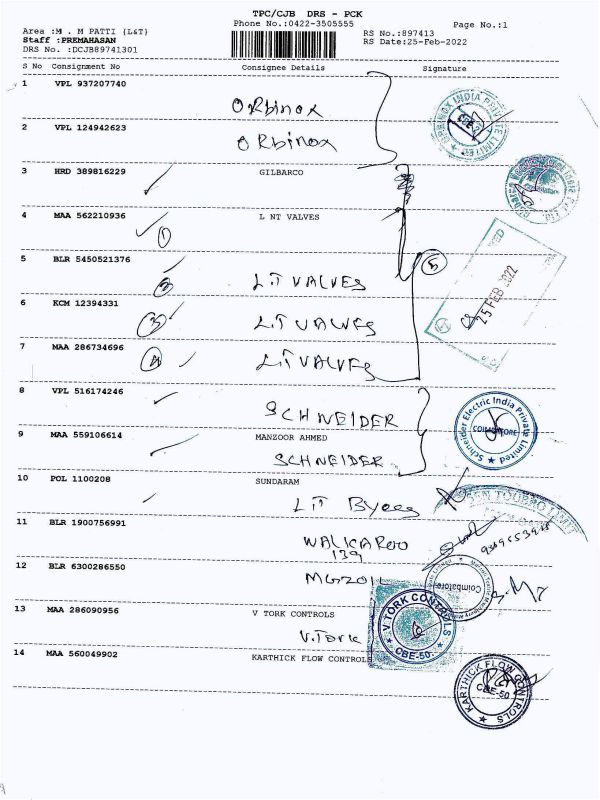 TPC/CJB DRS - PCK
Phone No.:0422-3505555
Page No.:1
Area :M . M PATTI {L&T}
Staff :PREMAHASAN
DRS No. :DCJB89741301
RS No.:897413
RS Date:25-Feb-2022
S No Consignment No Consignee Details Signature
1 VPL 937207740
Orbinox
2 VPL 124942623
Orbinox
3 HRD 389816229 GILBARCO
4 MAA 562210936 L NT VALVES
1
5 BLR 5450521376
2 L&T VALVES
5
6 KCM 12394331
3 L&T VALVES
7 MAA 286734696
4 L&T VALVES
25 FEB 2022
8 VPL 516174246
SCHNEIDER
Schneider Electric India Private Limited
COIMBATORE
9 MAA 559106614 MANZOOR AHMED
SCHNEIDER
10 POL 1100208 SUNDARAM
11 BLR 1900756991
WALKAROO
139
12 BLR 6300286550
Coimbatore
13 MAA 286090956 V TORK CONTROLS
V.Tork
V.TORK CONTROLS
CBE-50
14 MAA 560049902 KARTHICK FLOW CONTROLS
KARTHICK FLOW CONTROLS
CBE-50